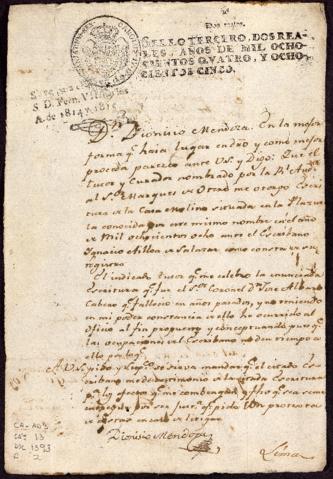 Dos reales
SELLO TERCERO, DOS REA-
LES, AÑOS DE MIL OCHO-
CIENTOS QUATRO, Y OCHO-
CIENTOS CINCO.
S. D. Fern. VII
A. de 1814 y 1815
Dn. Dionisio Mendoza. En la mejor
forma q. haia lugar en dro y como mejor
proceda parezco ante V.S. y Digo: Que el
tutor y Curador nombrado por la Rl. Aud.
al Sr. Marques de me otorgó Escri
tura de la Casa Molino situada en la
la conocida por este mismo nombre en el año
de Mil ochocientos ocho ante el Escribano
Ignacio Aillon Salazar como consta de su
registro
El indicado tutor q. me celebró la enunciada
Escritura q. fue el Sor. Coronel Dn. José
q. fallecio en años pasados, y no teniendo
en mi poder constancia de ello he ocurrido al
oficio al fin propuesto y conceptuando que
las ocupaciones del Escribano no den tiempo a
ello
A V.S. pido y sup.co se sirva mandar q. el citado Es
cribano me de testimonio de la citada Escritura
p.a los efectos q. me combengan q.
por ser just. q. pido
costas
Dionisio Mendoza
Lima
CA-AO3
CAJ 13
DOC 1393
F 2